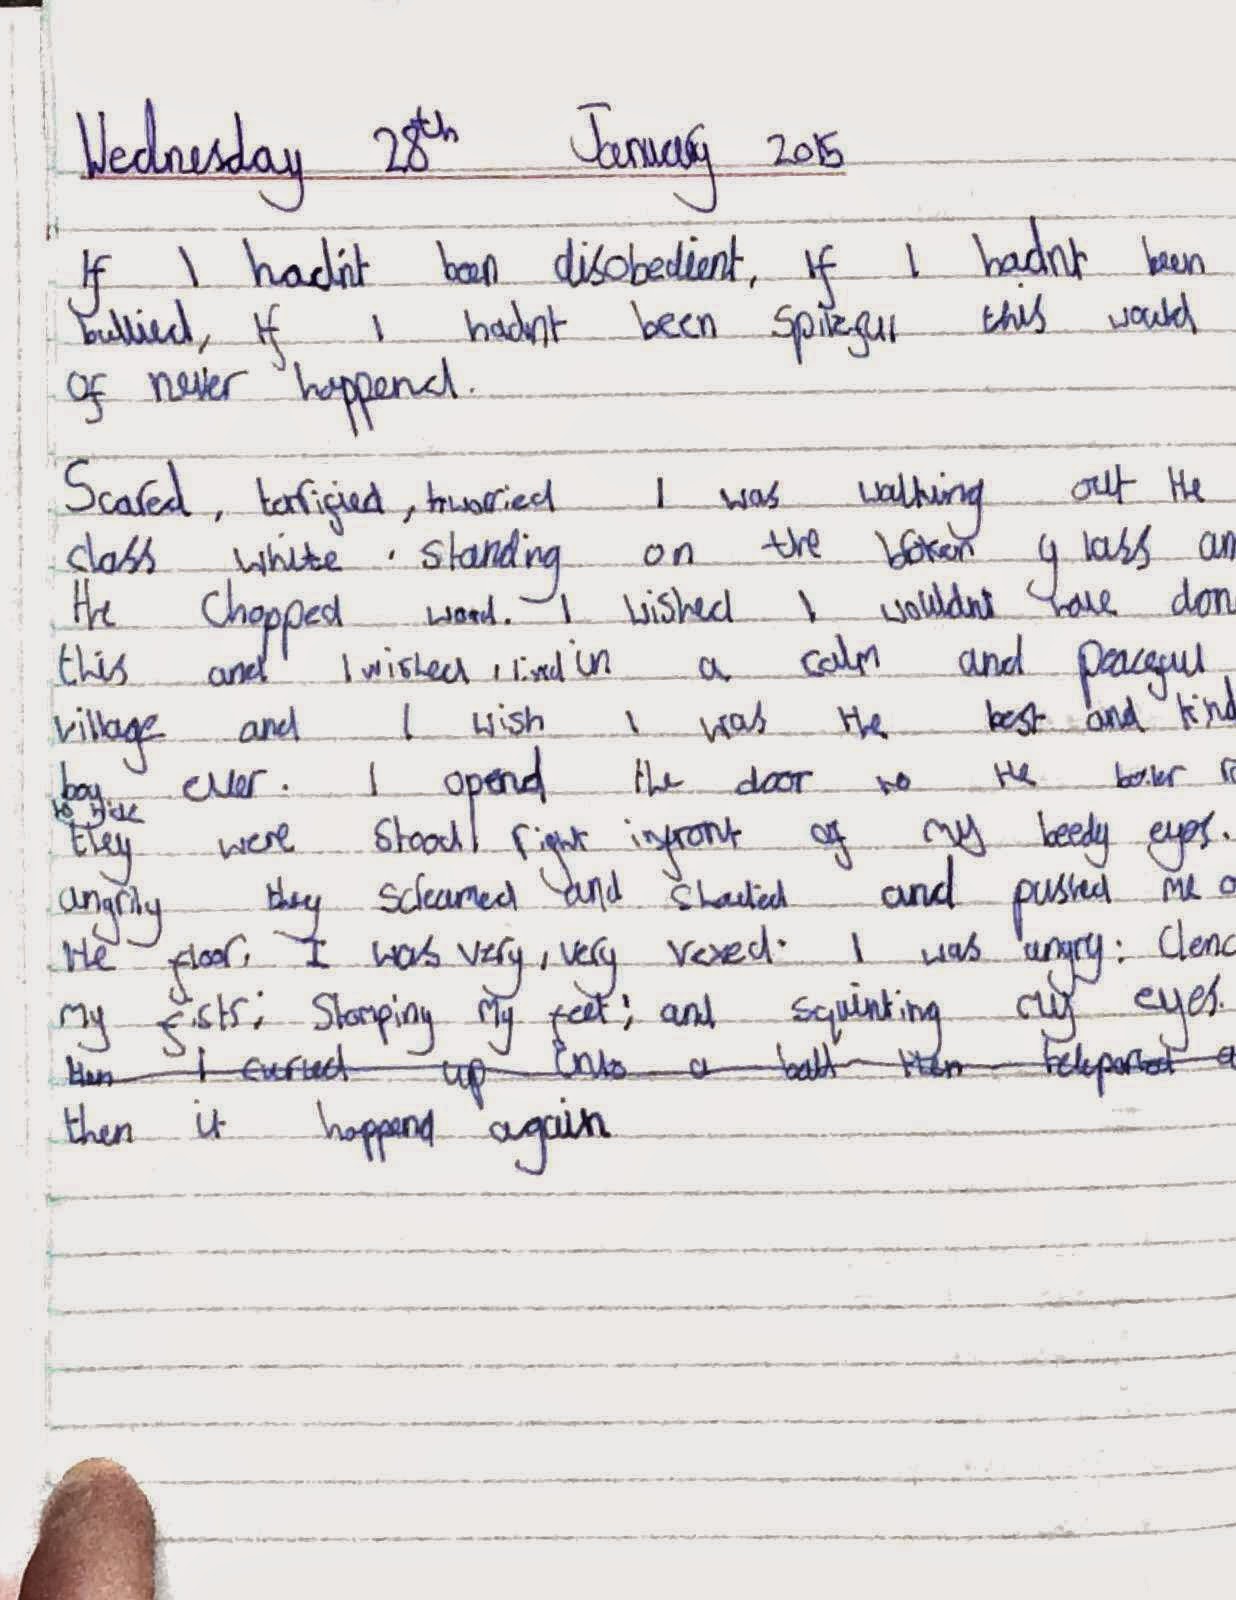 Wednesday 28th January 2015
If I hadn't been disobedient, If I hadnt been
bullied, If I hadnt been spitefull this would
of never happend.
Scared, terrified, worried I was walking out the
class white. standing on the broken glass an
the chopped wood. I wished I wouldnt have don
this and I wished I lived in a calm and peacefull
village and I wish I was the best and kind
boy ever. I opend the door to the boiler ro
to hide
they were stood right infront of my beedy eyes.
angrily they screamed and shouted and pushed me o
the floor. I was very, very vexed. I was angry: Clenc
my fists; Stomping my feet; and squinting my eyes.
then I curled up into a ball then teleported a
then it happend again